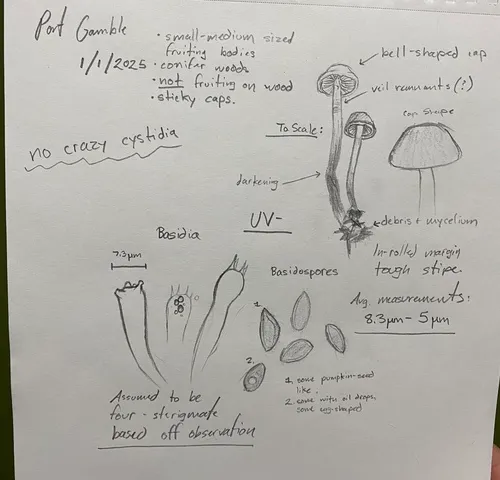 Port Gamble
1/1/2025
• small-medium sized
fruiting bodies
• conifer woods
• not fruiting on wood
• sticky caps.
no crazy cystidia
bell-shaped cap
veil remnants (?)
To Scale:
cap shape
darkening
debris + mycelium
UV-
In-rolled margin
tough stipe.
Basidia
7.3µm
Assumed to be
four-sterigmate
based off observation
Basidiospores
1.
2.
1. some pumpkin-seed
like.
2. some with oil drops,
some egg-shaped
Avg. measurements:
8.3µm - 5µm